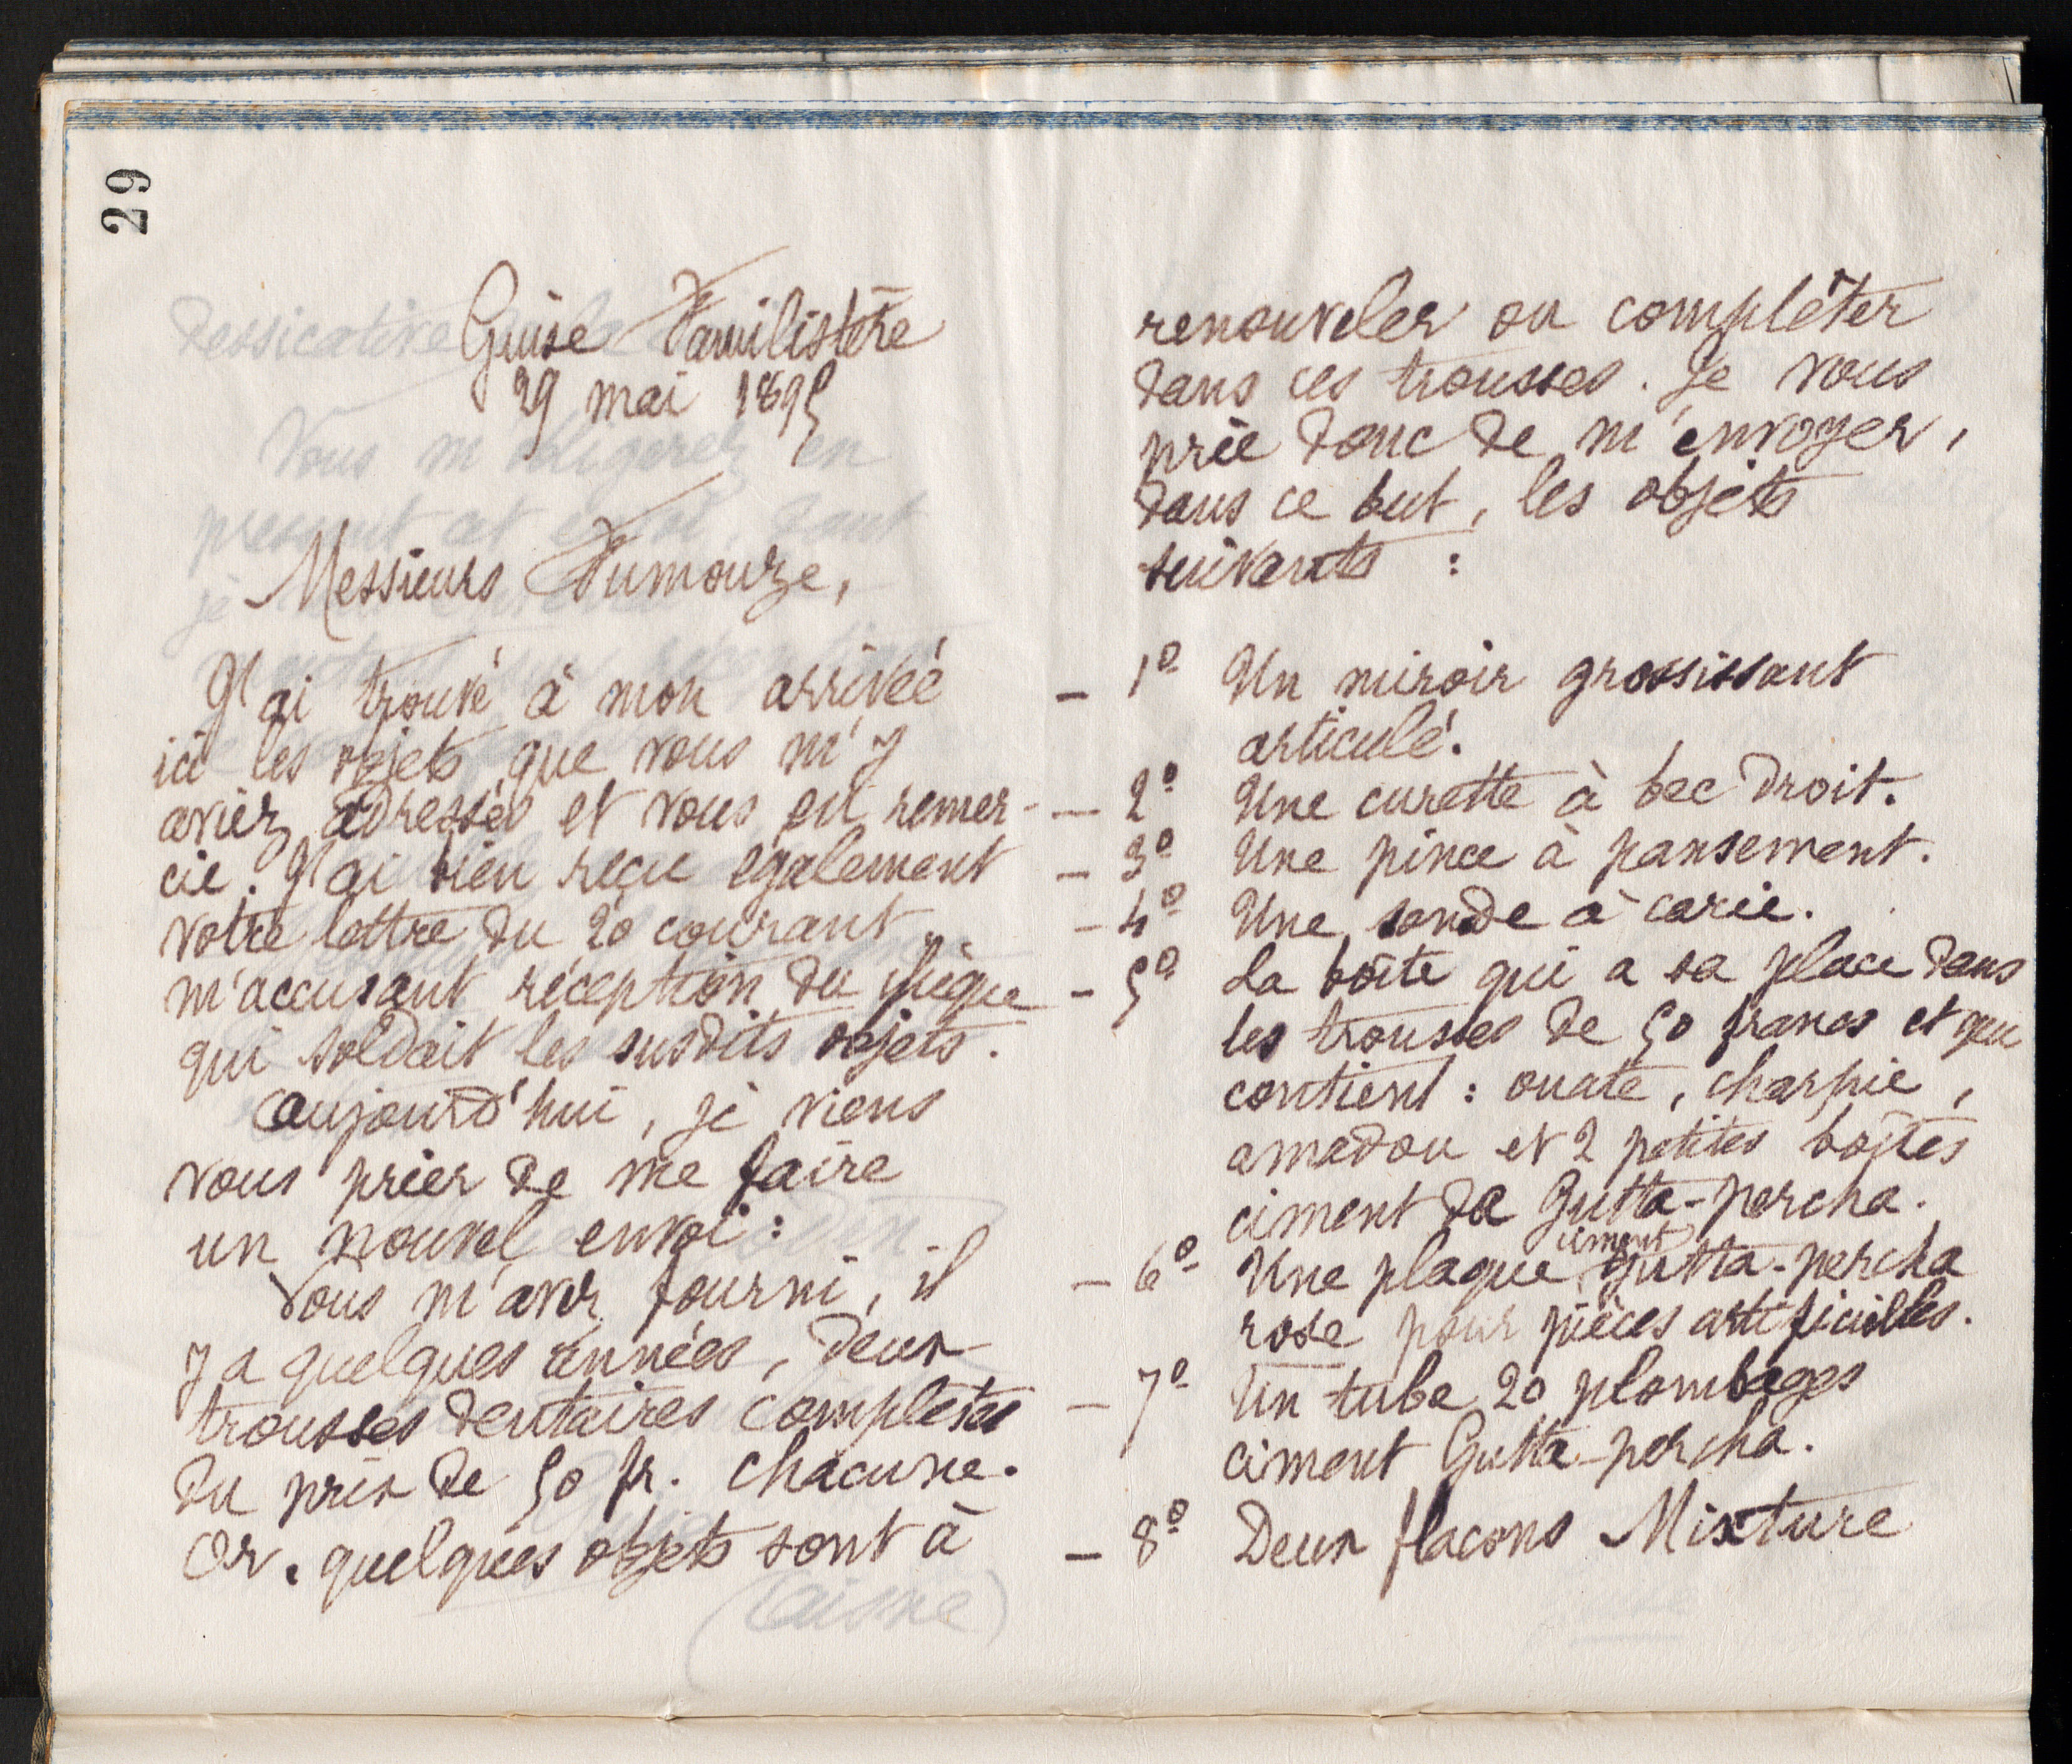 29
Guise Familistère
29 mai 1895
Messieurs Fumouze,
J'ai trouvé à mon arrivée
ici les objets que vous m'y
aviez adressés et vous en remer-
cie. J'ai bien reçu également
votre lettre du 20 courant
m'accusant réception du chèque
qui soldait les susdits objets.
Aujourd'hui, je viens
vous prier de me faire
un nouvel envoi :
Vous m'avez fourni, il
y a quelques années, deux
trousses dentaires complètes
du prix de 50 fr. chacune.
Or, quelques objets sont à
renouveler ou compléter
dans ces trousses. Je vous
prie donc de m'envoyer,
dans ce but, les objets
suivants :
– 1º Un miroir grossissant
articulé.
– 2º Une curette à bec droit.
– 3º Une pince à pansement.
– 4º Une sonde à carie.
– 5º La boîte qui a sa place dans
les trousses de 50 francs et qui
contient : ouate, charpie,
amadou et 2 petites boîtes
ciment de Gutta-percha.
– 6º Une plaque ciment gutta-percha
rose pour pièces artificielles.
– 7º Un tube 20 plombages
ciment Gutta-percha.
– 8º Deux flacons Mixture